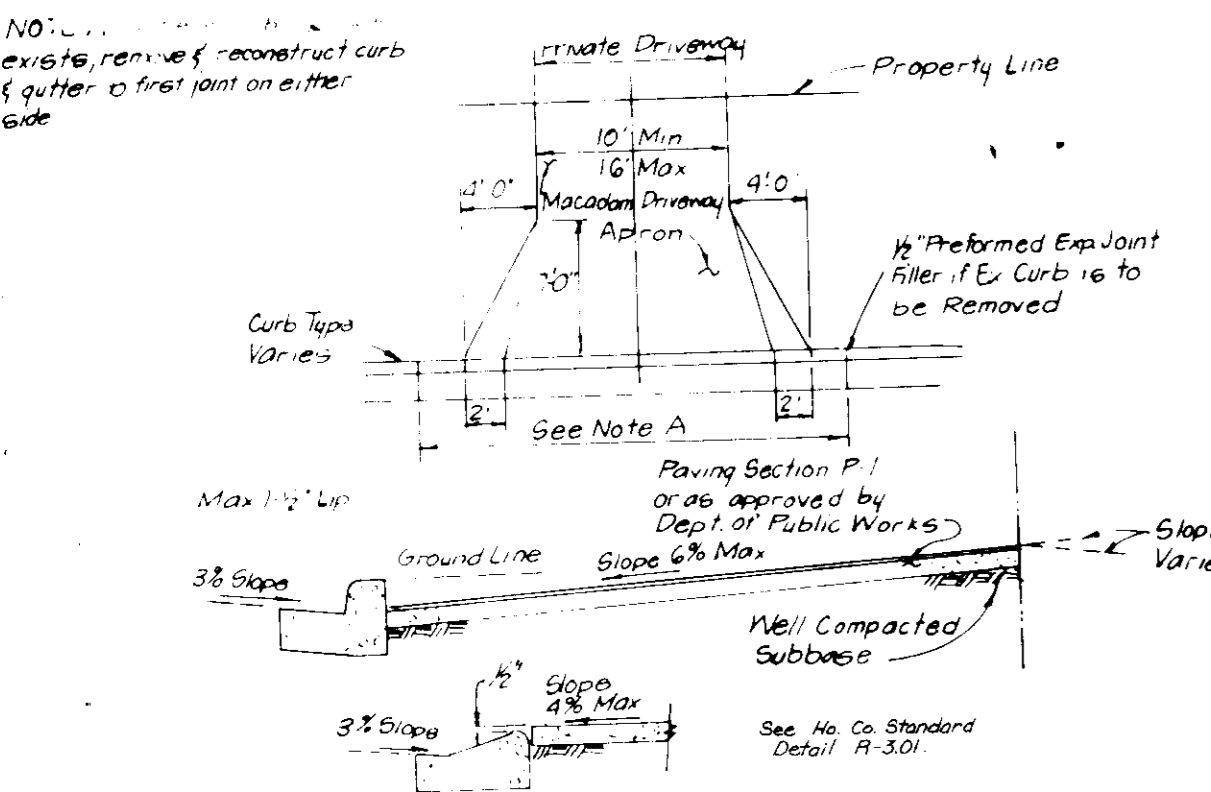 exists, remove & reconstruct curb
& gutter to first joint on either
side
Private Driveway
Property Line
10' Min
16' Max
4'0"
4'0
Macadam Driveway
Apron
½" Preformed Exp. Joint
Filler if Ex Curb is to
be Removed
Curb Type
Varies
2'
2'
See Note A
Paving Section P-1
or as approved by
Dept. of Public Works
Max 1-½" Lip
Ground Line
Slope 6% Max
3% Slope
Well Compacted
Subbase
½"
Slope
4% Max
3% Slope
See Ho. Co. Standard
Detail R-3.01.